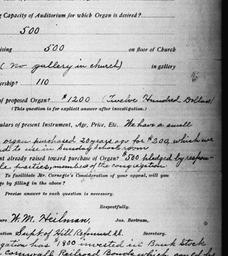 Capacity of Auditorium for which Organ is desired?
500
500 on floor of Church
(no gallery in church) in gallery
110
of proposed Organ? $1200 (Twelve Hundred Dollars)
(This question is for explicit answer after investigation.)
of present Instrument, Age, Price, Etc. We have a small
organ purchased 20 years ago for $200, which we
to use in Sunday school room
already raised toward purchase of Organ? 500 pledged by
parties, members of the congregation
To facilitate Mr. Carnegie's Consideration of your appeal, will you
by filling in the above?
Precise answer to each question is necessary.
Respectfully,
W. M. Heilman, Jas. Bertram,
Supt of Hill Reformed Secretary.
has $1800 invested in Bank Stock
Cornwall Railroad Bonds which